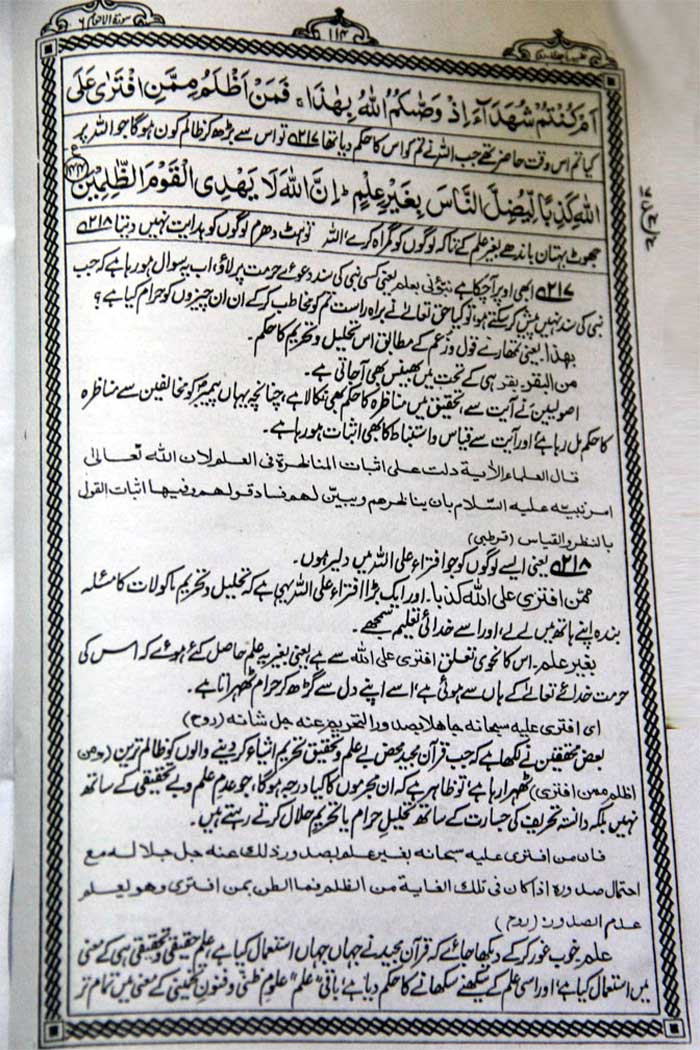 سورة الانعام ٦
١١٤
اَمْ كُنْتُمْ شُهَدَآءَ اِذْ وَصّٰىكُمُ اللّٰهُ بِهٰذَا ۚ فَمَنْ اَظْلَمُ مِمَّنِ افْتَرٰى عَلَى
کیا تم اس وقت حاضر تھے جب اللہ نے تم کو اس کا حکم دیا تھا ۵۲۱۷ تو اس سے بڑھ کر ظالم کون ہوگا جو اللہ پر
اللّٰهِ كَذِبًا لِّيُضِلَّ النَّاسَ بِغَيْرِ عِلْمٍ ۭ اِنَّ اللّٰهَ لَا يَهْدِى الْقَوْمَ الظّٰلِمِيْنَ ۱۴۴
جھوٹ بہتان باندھے بغیر علم کے، تاکہ لوگوں کو گمراہ کرے، اللہ تو ہٹ دھرم لوگوں کو ہدایت نہیں دیتا ۵۲۱۸
۵۲۱۷ ابھی اوپر آچکا ہے نبئونی بعلم یعنی کسی نبی کی سند دعوے حرمت پر لاؤ، اب یہ سوال ہورہا ہے کہ جب
نبی کی سند نہیں پیش کرسکتے ہو، تو کیا حق تعالےٰ نے براہ راست تم کو مخاطب کرکے ان ان چیزوں کو حرام کیا ہے؟
بھذا یعنی تمھارے قول و زعم کے مطابق اس تحلیل و تحریم کا حکم۔
من البقر بقر ہی کے تحت میں بھینس بھی آجاتی ہے۔
اصولیین نے آیت سے، تحقیق میں مناظرہ کا حکم بھی نکالا ہے، چنانچہ یہاں پیمبرؐ کو مخالفین سے مناظرہ
کا حکم مل رہا ہے، اور آیت سے قیاس و استنباط کا بھی اثبات ہورہا ہے۔
قال العلماء الآیة دلت علی اثبات المناظرة فی العلم لان الله تعالیٰ
امر نبیه علیه السّلام بان یناظرهم ویبیّن لهم فساد قولهم وفیها اثبات القول
بالنظر والقیاس (قرطبی)
۵۲۱۸ یعنی ایسے لوگوں کو جو افتراء علی اللہ میں دلیر ہوں۔
ممّن افتری علی اللہ کذبا۔ اور ایک بڑا افتراء علی اللہ یہی ہے کہ تحلیل و تحریم ماکولات کا مسئلہ
بندہ اپنے ہاتھ میں لے لے، اور اسے خدائی تعلیم سمجھے۔
بغیر علم۔ اس کا نحوی تعلق افتری علی اللہ سے ہے، یعنی بغیر یہ علم حاصل کئے ہوئے کہ اس کی
حرمت خدائے تعالےٰ کے ہاں سے ہوئی ہے، اسے اپنے دل سے گڑھ کر حرام ٹھہراتا ہے۔
ای افتری علیه سبحانه جاهلا بصدور التحریم عنه جل شانه (روح)
بعض محققین نے لکھا ہے کہ جب قرآن مجید محض بے علم و تحقیق تحریم اشیاء کر دینے والوں کو ظالم ترین (ومن
اظلم ممن افتری) ٹھہرا رہا ہے، تو ظاہر ہے کہ ان مجرموں کا کیا درجہ ہوگا، جو عدم علم و بے تحقیقی کے ساتھ
نہیں بلکہ دانستہ تحریف کی جسارت کے ساتھ تحلیل حرام یا تحریم حلال کرتے رہتے ہیں۔
فان من افتری علیه سبحانه بغیر علم بصدور ذلك عنه جل جلاله مع
احتمال صدوره اذا كان فی تلك الغایة من الظلم فما الظن بمن افتری وهو یعلم
عدم الصدور (روح)
علم۔ خوب غور کرکے دیکھا جائے کہ قرآن مجید نے جہاں جہاں استعمال کیا ہے، علم حقیقی و تحقیقی ہی کے معنی
میں استعمال کیا ہے، اور اسی علم کے سیکھنے سکھانے کا حکم دیا ہے، باقی "علم" علوم ظنی و فنون تخمینی کے معنی میں تمام تر